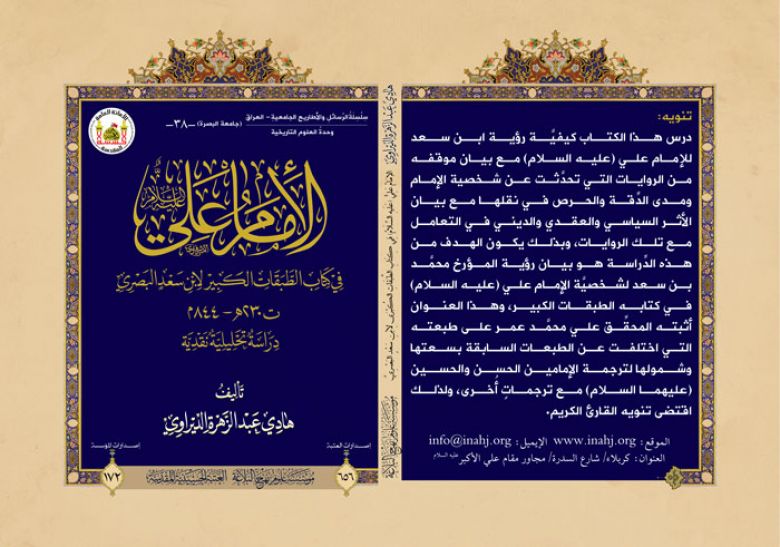 سلسلة الرسائل والأطاريح الجامعية - العراق
(جامعة البصرة) -٣٨-
وحدة العلوم التاريخية
الإمام علي عليه السلام
في كتاب الطبقات الكبير لابن سعد البصري
ت ٢٣٠هـ - ٨٤٤م
دراسة تحليلية نقدية
تأليف
هادي عبد الزهرة الديراوي
إصدارات المؤسسة
١٧٢
إصدارات العتبة
٦٥٦
مؤسسة علوم نهج البلاغة العتبة الحسينية المقدسة
هادي عبد الزهرة الديراوي
الإمام علي (عليه السلام) في كتاب الطبقات الكبير لابن سعد البصري
مؤسسة علوم نهج البلاغة
تنويه:
درس هذا الكتاب كيفيَّة رؤية ابن سعد
للإمام علي (عليه السلام) مع بيان موقفه
من الروايات التي تحدَّثت عن شخصية الإمام
ومدى الدِّقة والحرص في نقلها مع بيان
الأثر السياسي والعقدي والديني في التعامل
مع تلك الروايات، وبذلك يكون الهدف من
هذه الدِّراسة هو بيان رؤية المؤرخ محمَّد
بن سعد لشخصيَّة الإمام علي (عليه السلام)
في كتابه الطبقات الكبير، وهذا العنوان
أثبته المحقِّق علي محمَّد عمر على طبعته
التي اختلفت عن الطبعات السابقة بسعتها
وشمولها لترجمة الإمامين الحسن والحسين
(عليهما السلام) مع ترجماتٍ أُخرى، ولذلك
اقتضى تنويه القارئ الكريم.
الموقع: www.inahj.org الإيميل: info@inahj.org
العنوان: كربلاء/ شارع السدرة/ مجاور مقام علي الأكبر عليه السلام